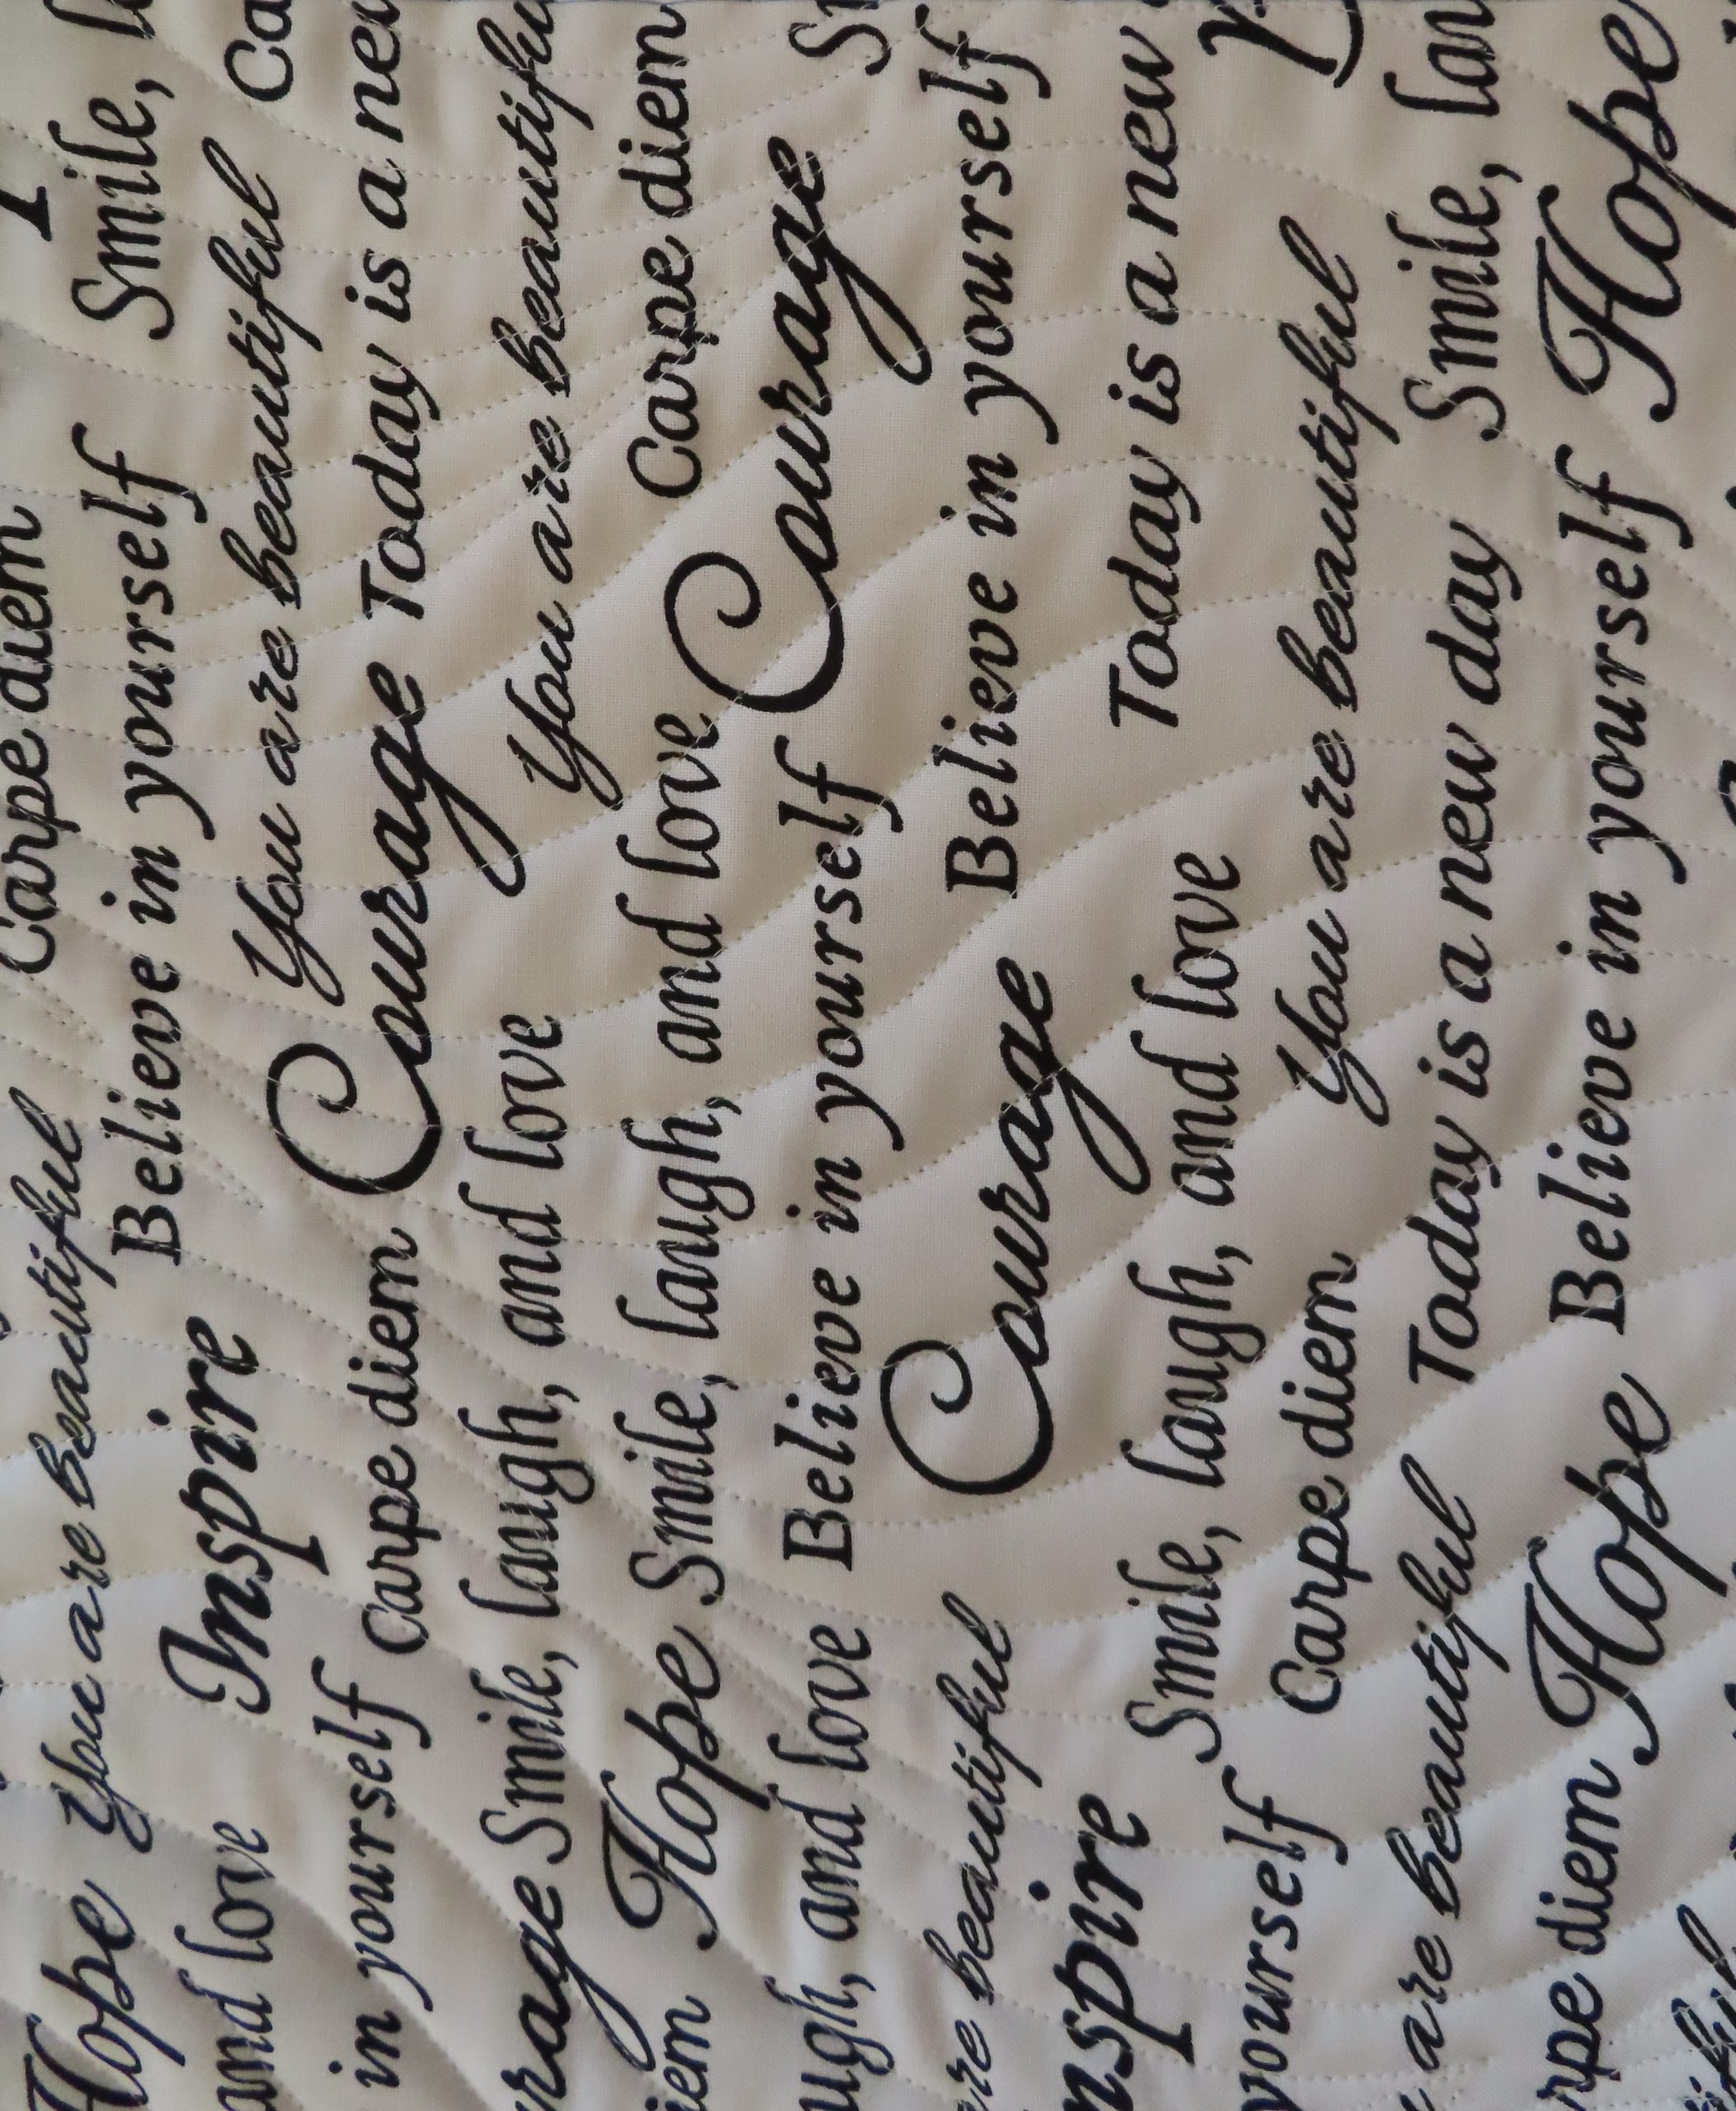 Carpe diem
Hope You are beautiful Believe in yourself Smile,
and love Inspire You are beautiful Ca
in yourself Carpe diem Courage Today is a new
rage Smile, laugh, and love You are beautifu
iem Hope Smile, laugh, and love Carpe diem
ugh, and love Believe in yourself Courage
re beautiful Courage Believe in yourself
nspire Smile, laugh, and love Today is a new
yourself Carpe diem You are beautiful
are beautiful Today is a new day Smile, lau
rpe diem Hope Believe in yourself Hope